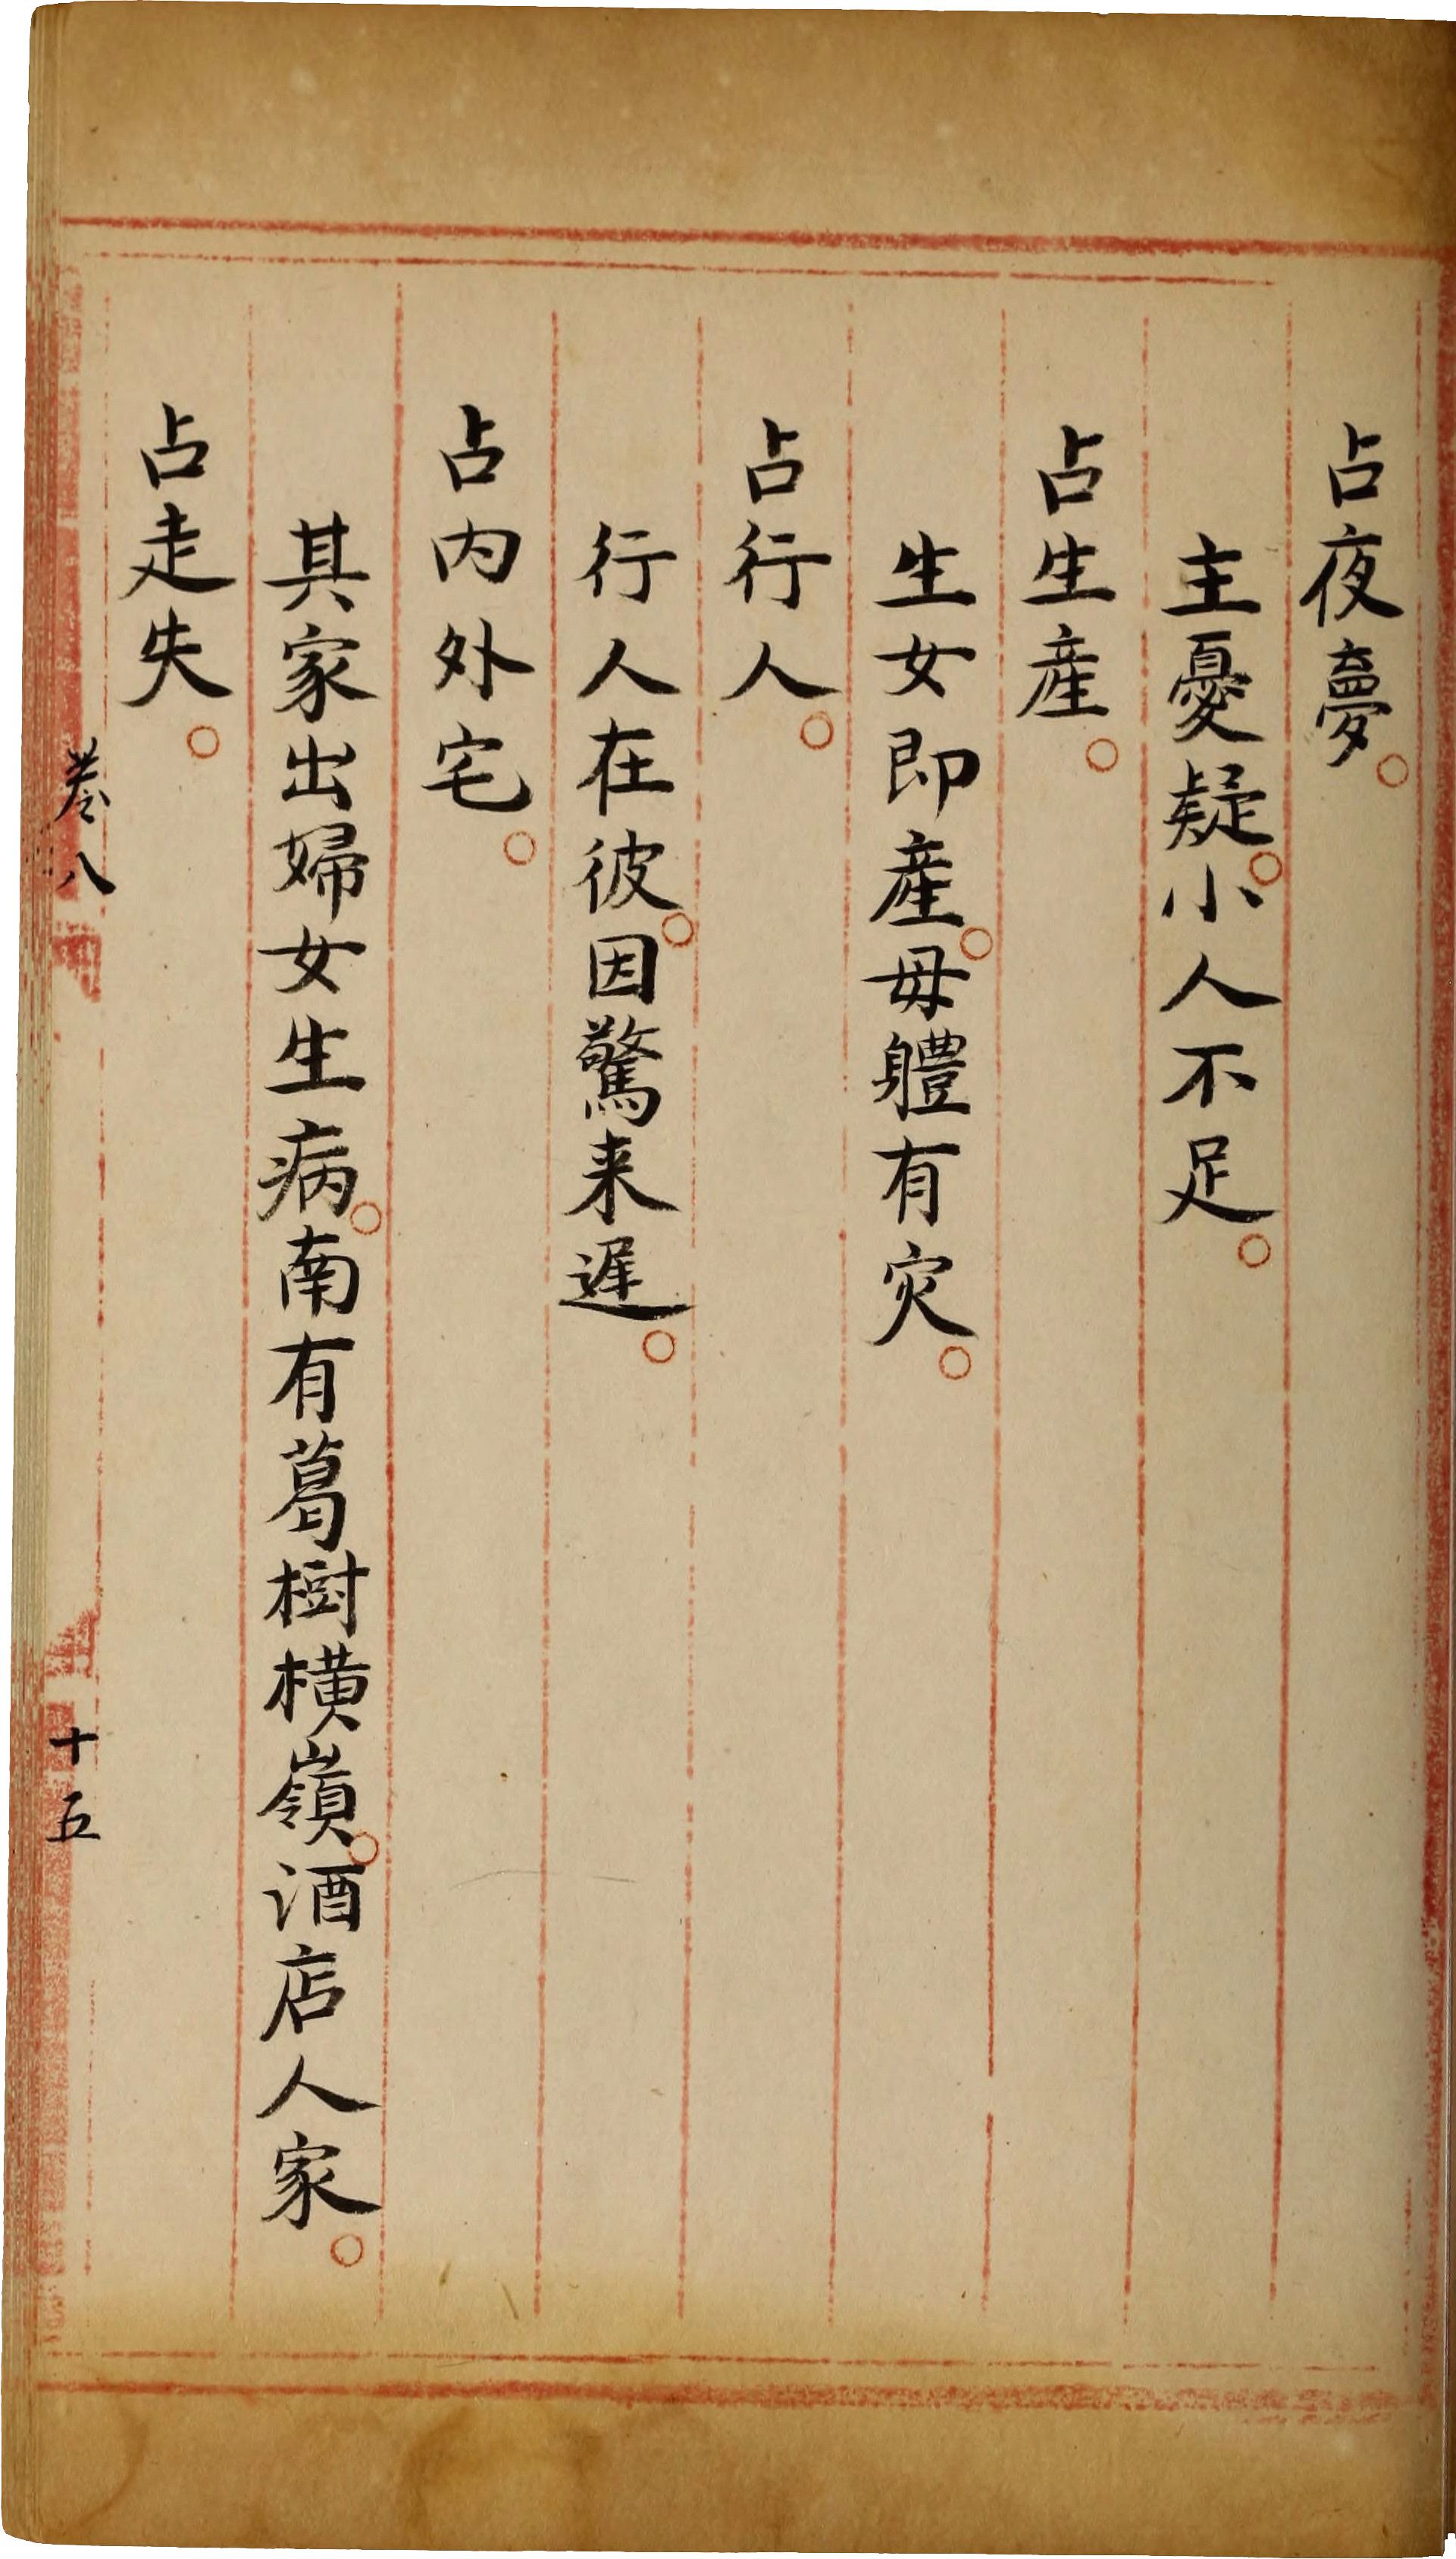 占夜夢。
主憂疑。小人不足。
占生産。
生女即産。毋軆有灾。
占行人。
行人在彼。因驚来遲。
占内外宅。
其家出婦女生病。南有葛樹横嶺。酒店人家。
占走失。
卷八
十五